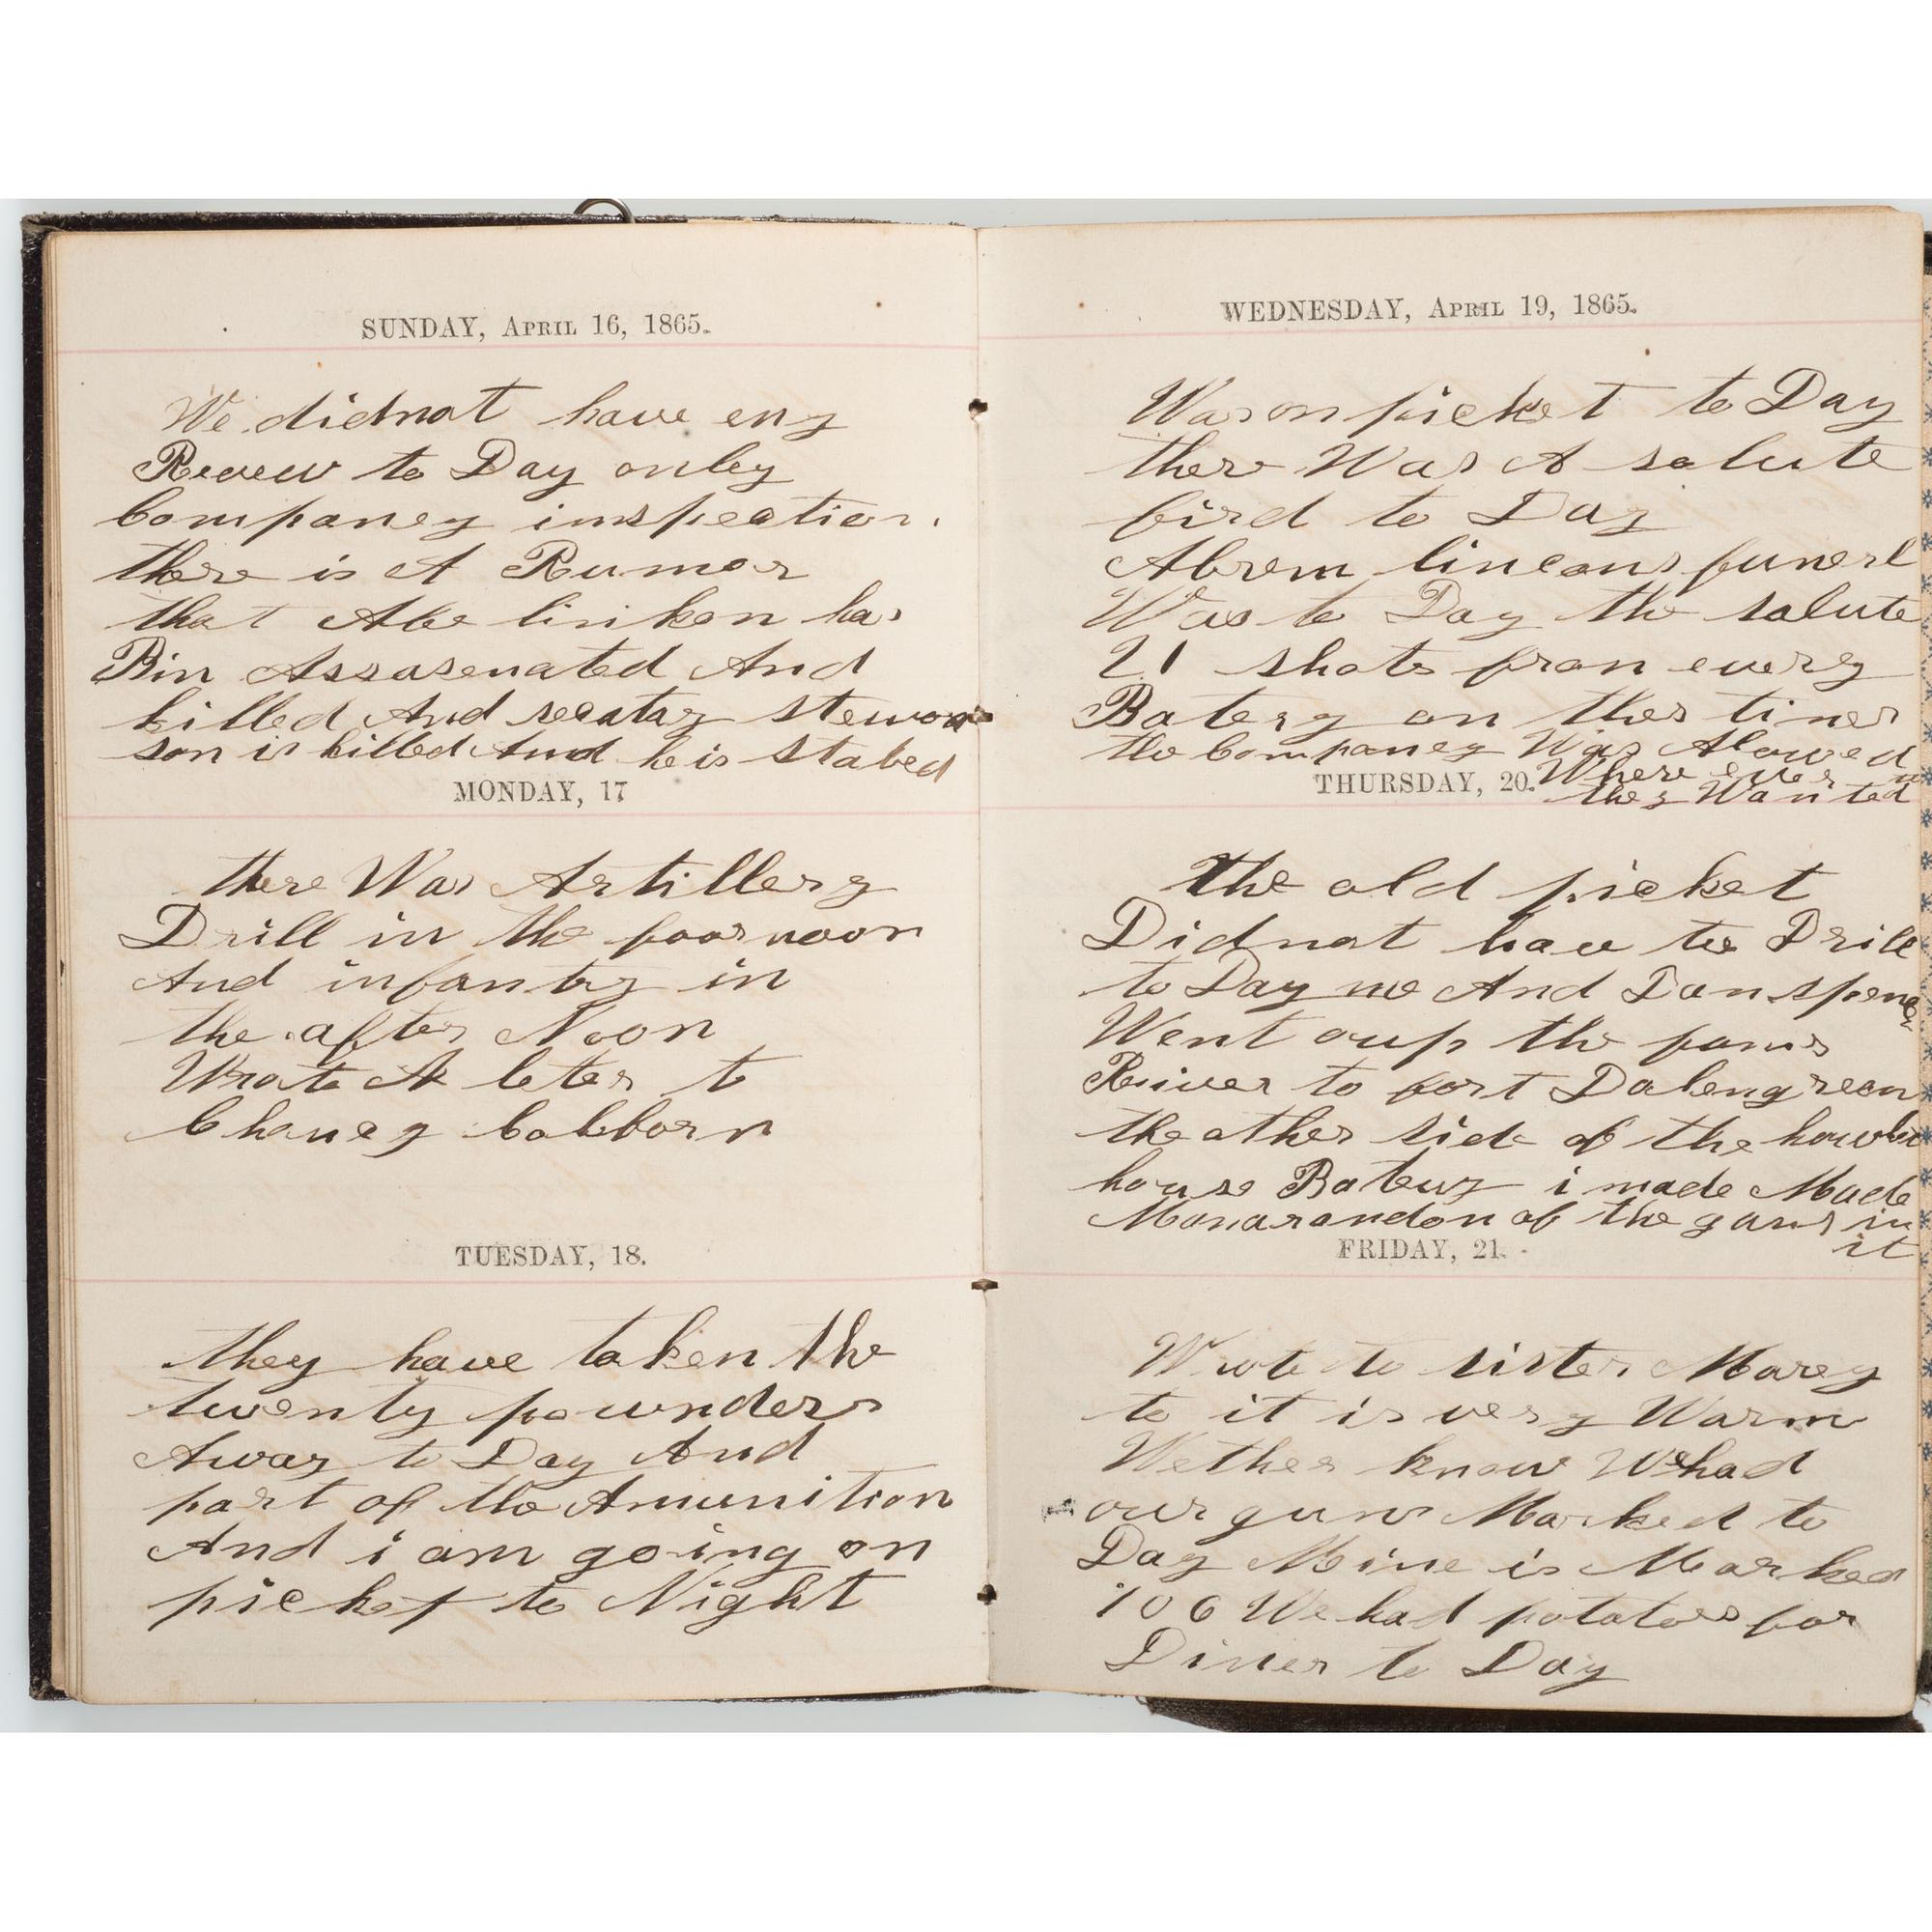 SUNDAY, APRIL 16, 1865.
We didnot have eny
Revew to Day onley
Companey inspection.
there is A Rumor
that Abe linkon has
Bin Assasenated And
killed And secatary
son is killed And he is stabed
MONDAY, 17
there Was Artillery
Drill in the foornoon
And infantry in
the after Noon
Wrote A leter to
Chaney
TUESDAY, 18.
they have taken the
twenty pounders
Away to Day And
part of the Amunition
And i am going on
picket to Night
WEDNESDAY, APRIL 19, 1865.
Was on picket to Day
there Was A salute
fird to Day
Abrem lincons funerl
Was to Day the salute
21 shots from every
Batery on thes lines
the Companey Was Alowed
Where ever
they Wanted
THURSDAY, 20.
The old picket
Didnot have to Drill
to Day me And Dan
Went oup the
River to fort
the other side of the
house Batery i made Made
of the guns in
it
FRIDAY, 21.
Wrote to sister Marey
to it is very Warm
Wether know We had
our guns Marked to
Day Mine is Marked
106 We had potatoes for
Diner to Day